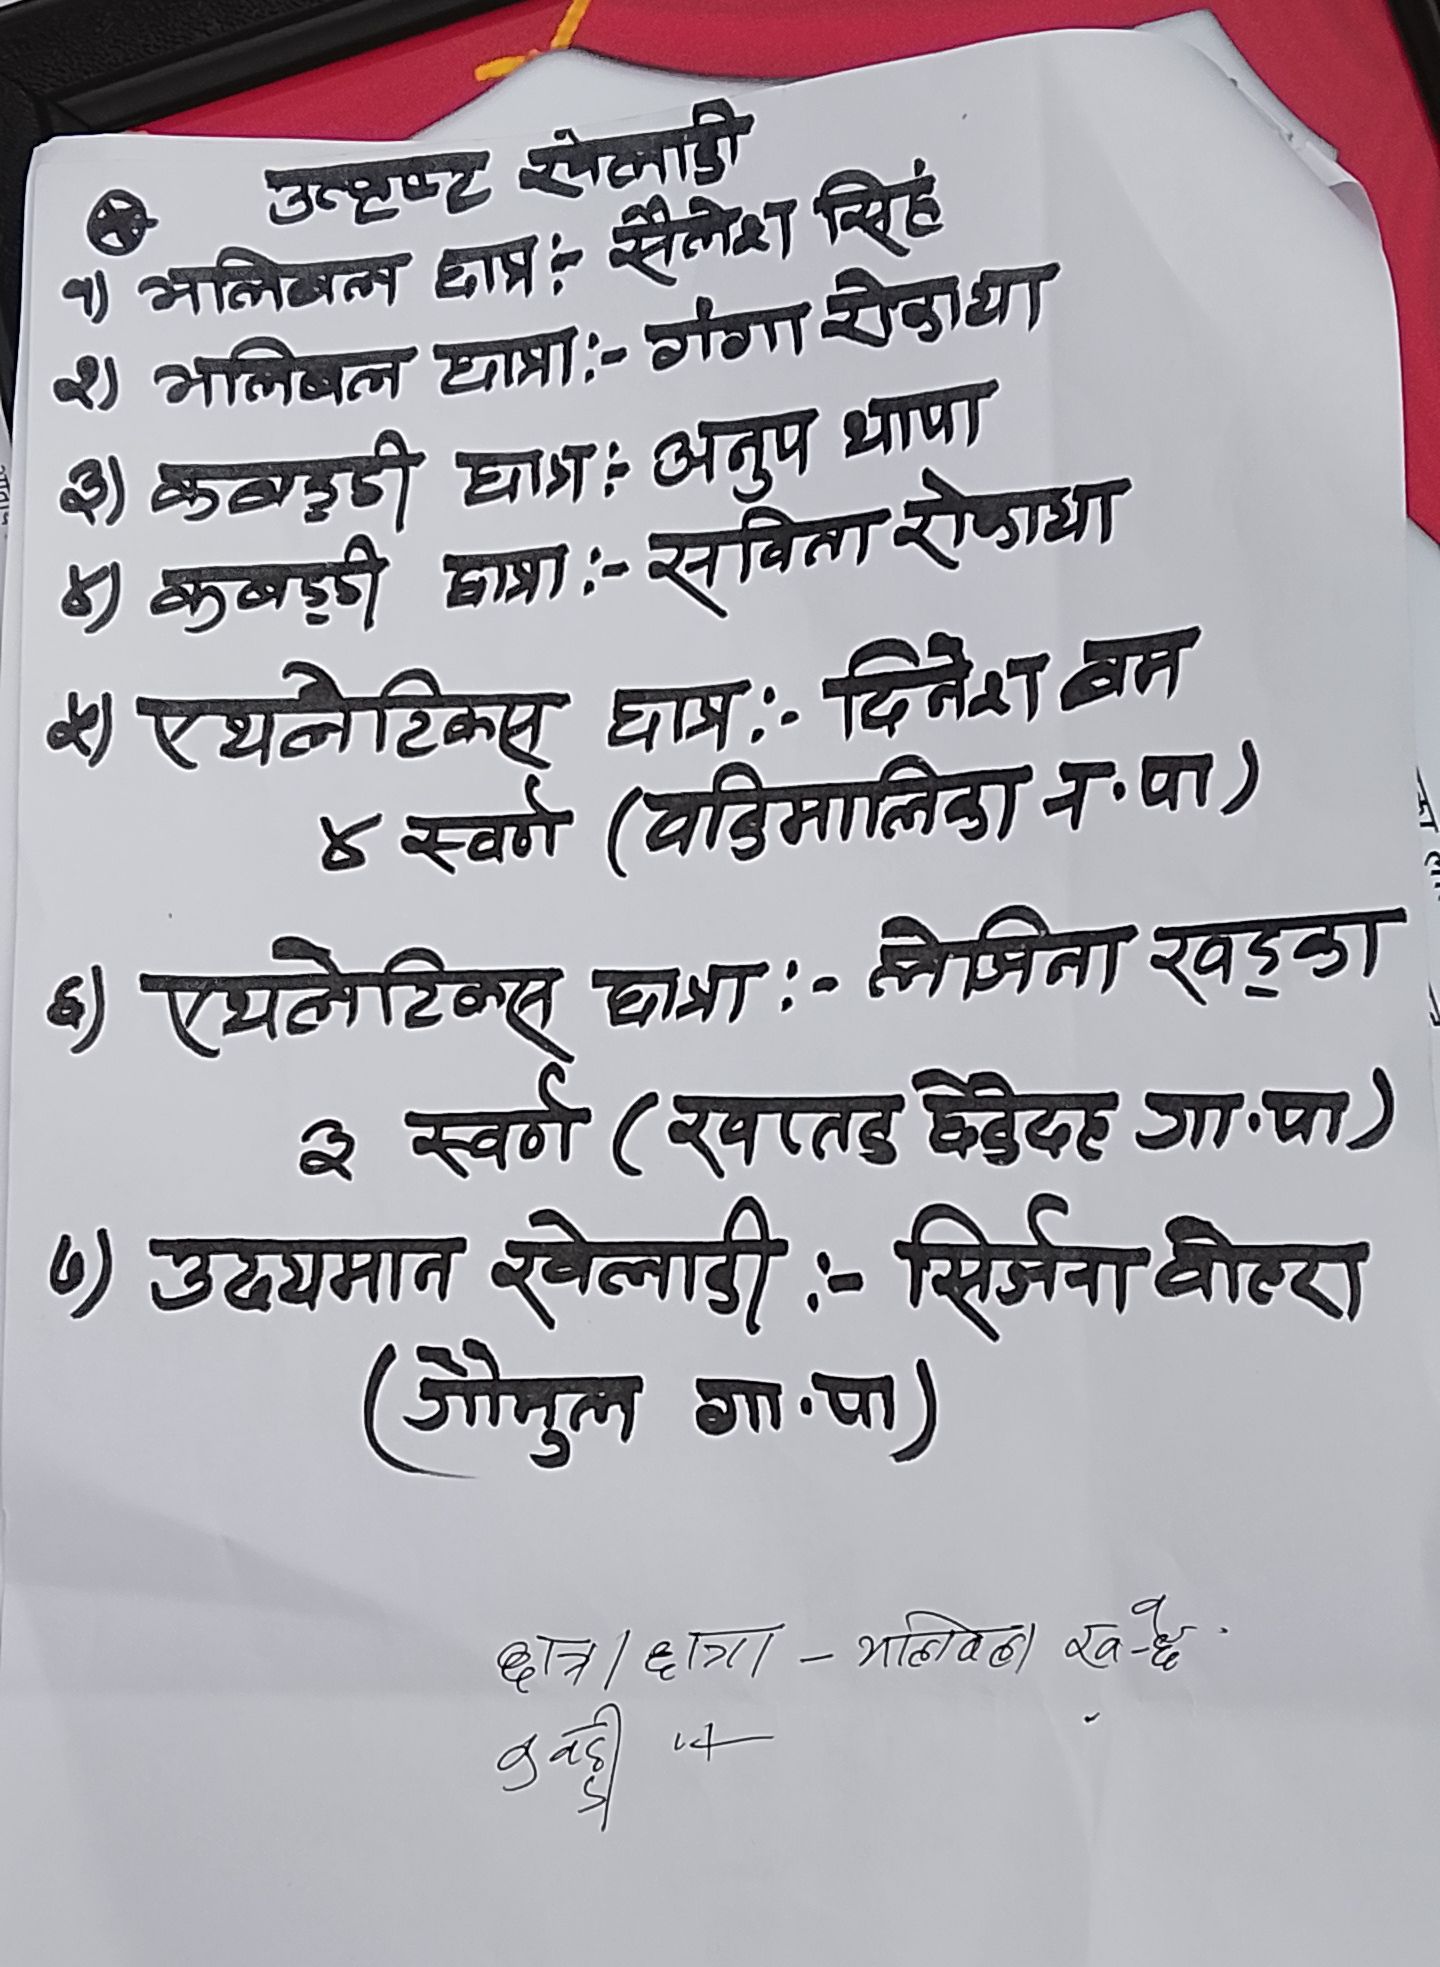 उत्कृष्ट खेलाडी
१) भलिबल छात्र:- सैलेश सिहं
२) भलिबल छात्रा:- गंगा रोकाया
३) कबड्डी छात्र:- अनुप थापा
४) कबड्डी छात्रा:- सविता रोकाया
५) एथलेटिक्स छात्र:- दिनेश बम
४ स्वर्ण (वडिमालिका न.पा)
६) एथलेटिक्स छात्रा:- लेजिना खड्का
३ स्वर्ण (खप्तड छेडेदह गा.पा)
७) उदयमान खेलाडी :- सिर्जना बोहरा
(गौमुल गा.पा)
छात्र/छात्रा - भलिबल
कबड्डी